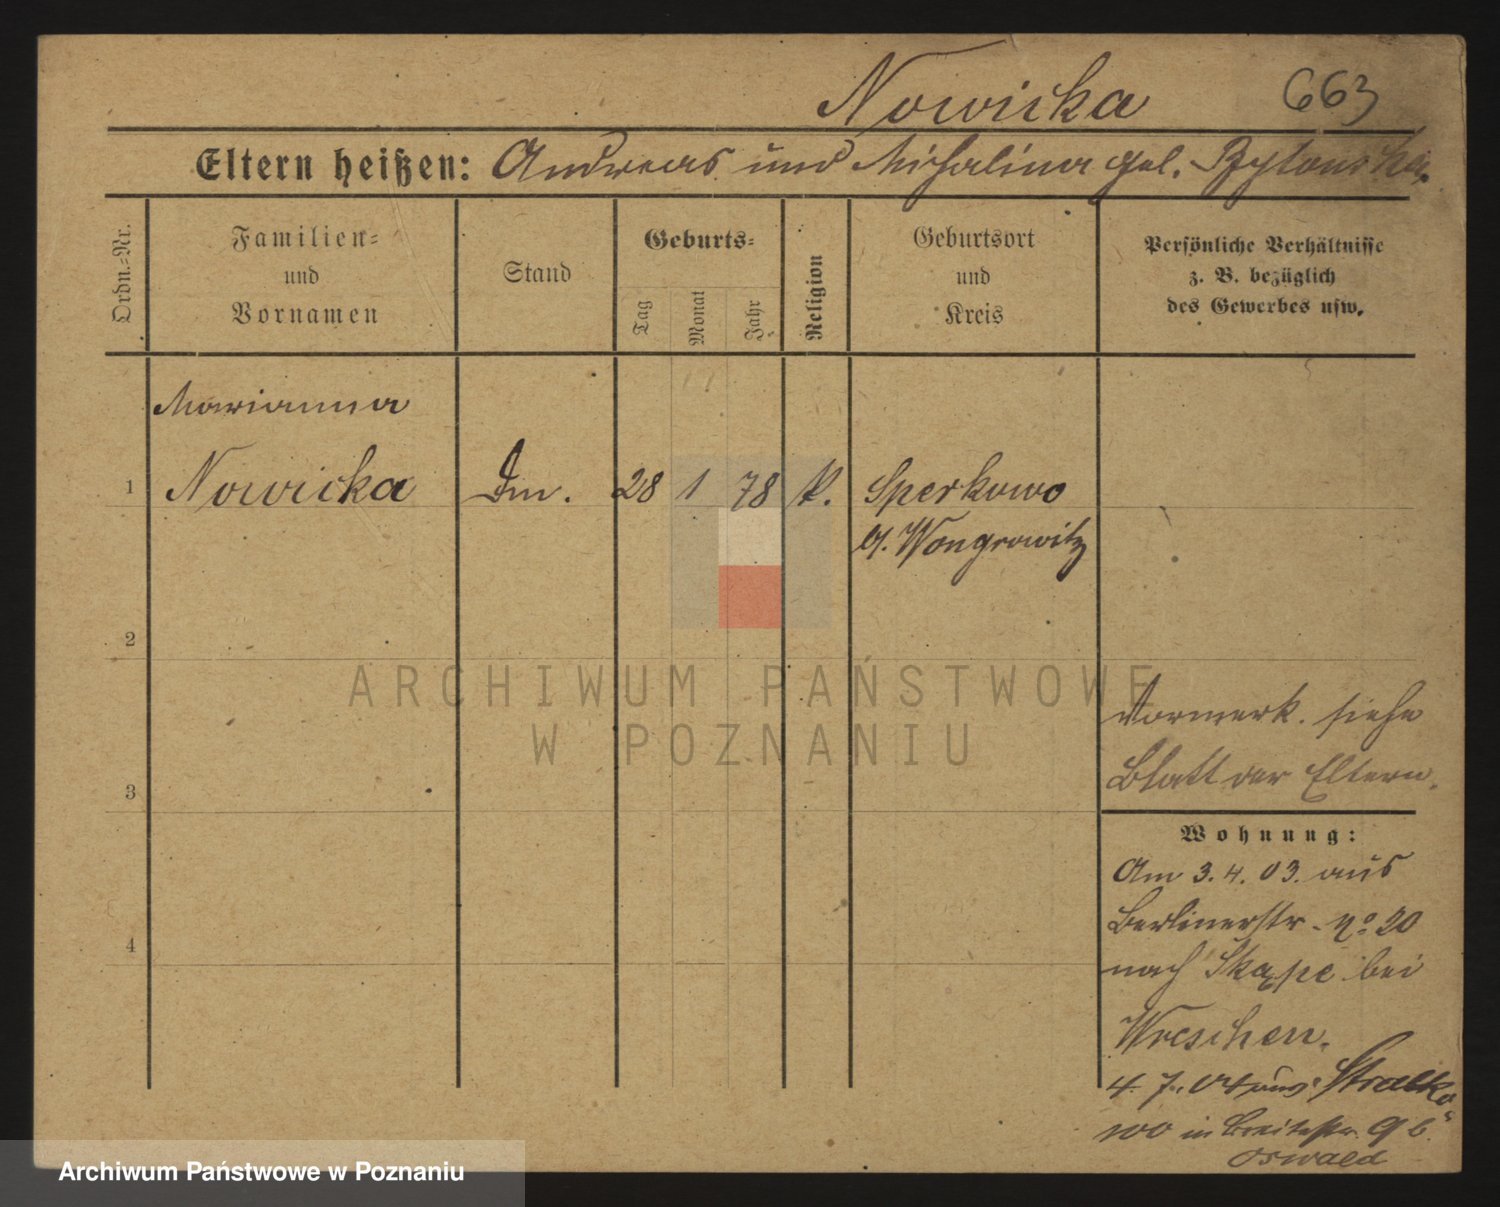 Nowicka 663
Eltern heißen: Andreas und Mihalina geb.
Ordn.-Nr.
Familien-
und
Vornamen
Stand
Geburts-
Tag
Monat
Jahr
Religion
Geburtsort
und
Kreis
Persönliche Verhältnisse
z. B. bezüglich
des Gewerbes usw.
Marianna
1 Nowicka Dm. 28 1 78 k. Sperkowo
Wongrowitz
2
Vormerk. siehe
Blatt der Eltern.
3
Wohnung:
Am 3.4.03. aus
Berlinerstr. No 20
4
nach Skąpe bei
Wreschen.
4.7.04 aus Stralko
wo in Breitestr. 9 b.
Oswald
ARCHIWUM PAŃSTWOWE
W POZNANIU
Archiwum Państwowe w Poznaniu